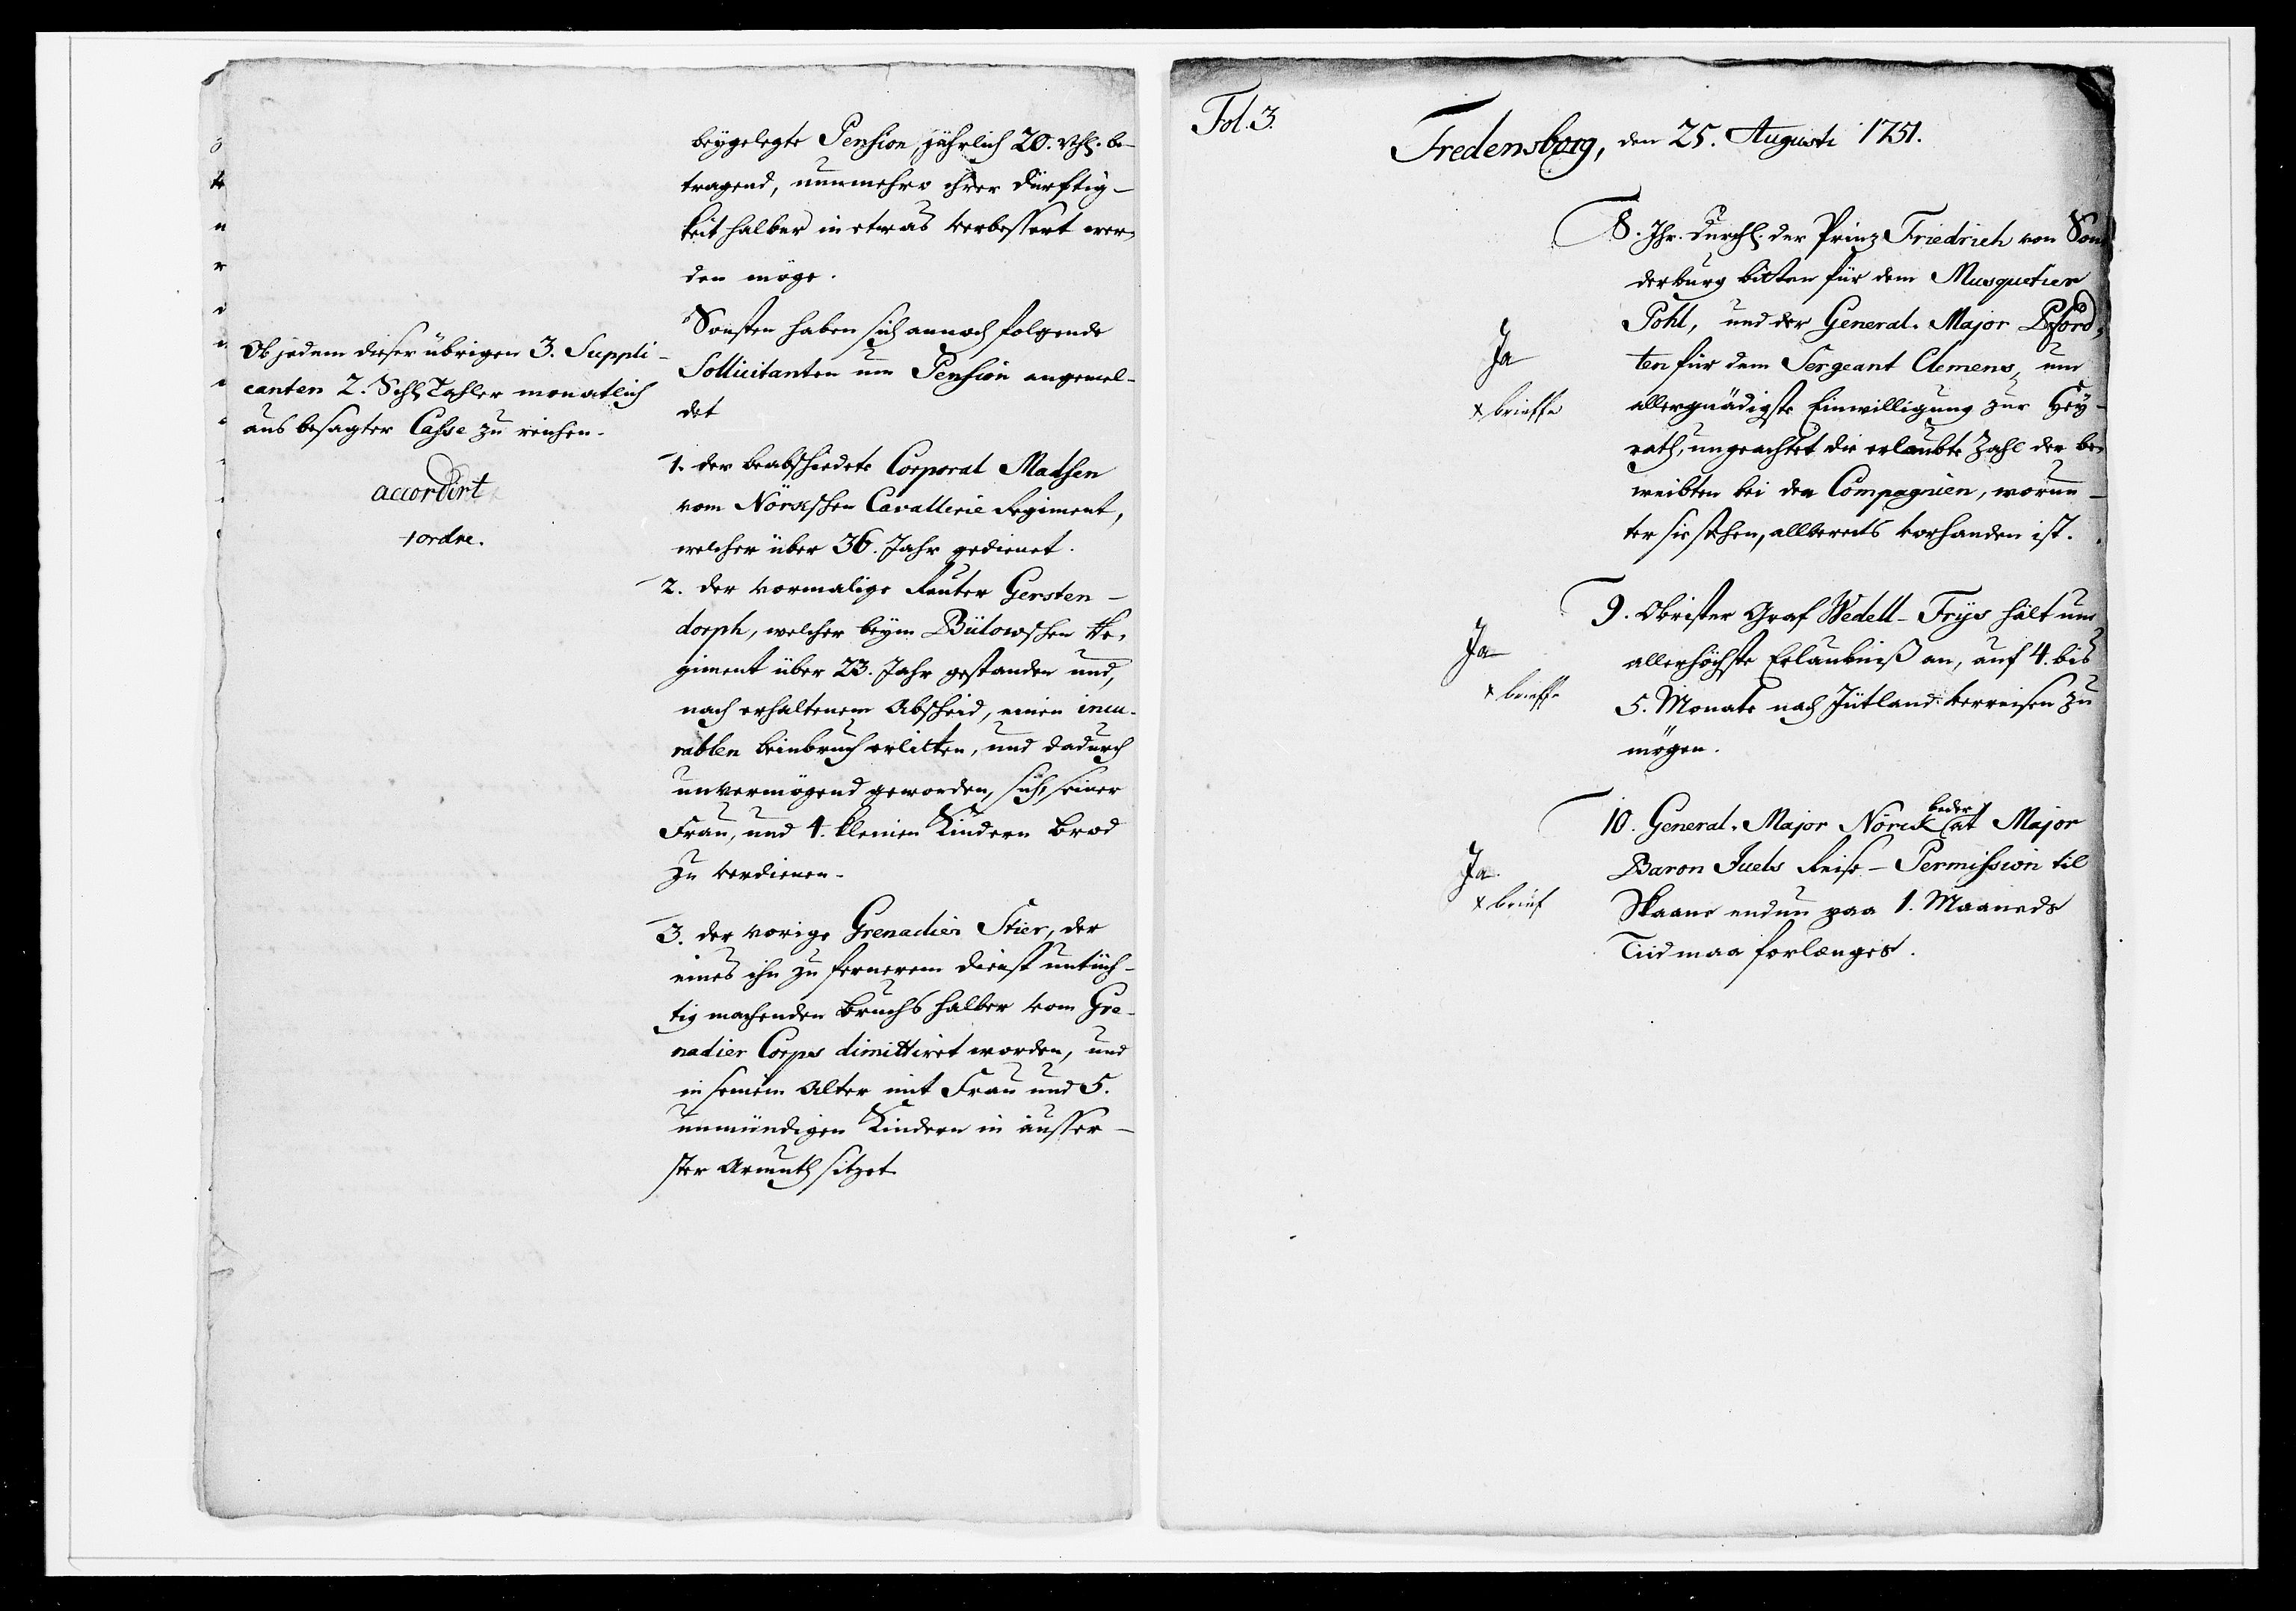 beygelegte Pension, jährlich 20. Rthl. be-
tragend, nunmehro ihrer Dürftig-
keit halber in etwas verbessert wer-
den möge.
Sonsten haben sich annoch folgende
Sollicitanten um Pension angemel-
det
Ob jedem dieser übrigen 3. Suppli-
canten 2. Schl Tahler monatlich
aus besagter Casse zu reichen.
accordirt
+ ordre.
1. der beabschiedete Corporal Madsen
vom Nörckschen Cavallerie Regiment,
welcher über 36. Jahr gedienet.
2. der vormalige Reuter Gersten-
dorph, welcher beym Bülowschen Re-
giment über 23. Jahr gestanden und,
nach erhaltenem Abscheid, einen incu-
rablen Beinbruch erlitten, und dadurch
unvermögend geworden, sich, seiner
Frau, und 4. kleinen Kindern Brod
zu verdienen.
3. der vorige Grenadier Stier, der
eines ihn zu fernerem Dienst untüch-
tig machenden Bruchs halber vom Gre-
nadier Corps dimittiret worden, und
in seinem Alter mit Frau und 5.
unmündigen Kindern in äusser-
ster Armuth sitzet.
Fol. 3.
Fredensborg, den 25. Augusti 1751.
8. Ihr. Durchl. der Prinz Friedrich von Son-
derburg bitten für dem Musquetier
Pohl, und der General-Major
ten für dem Sergeant Clemens, um
allergnädigste Einwilligung zur Hey-
rath, ungeachtet die erlaubte Zahl der be-
weibten bei den Compagnien, worun-
ter sie stehen, allbereits vorhanden ist.
Ja
+ brieffe
9. Obrister Graf Wedell-Frijs hält um
allerhöchste Erlaubniß an, auf 4. bis
5. Monate nach Jütland verreisen zu
mögen.
Ja
+ brieffe
10. General-Major Nörck beder at Major
Baron Juels Reise-Permission til
Skaane endnu paa 1. Maaneds
Tiid maa forlænges.
Ja
+ brief